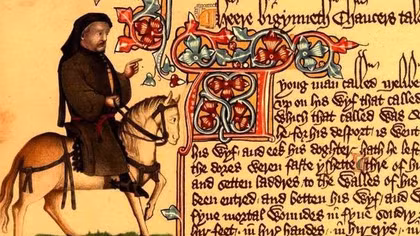 Heere bigynneth Chaucers tal
A yong man called Melibe
vp on his Wyf that calle
Which that called Was
he for his desport is Went
his Wyf and eek his doghter hath he left
the dores Weren faste yshette of his
and setten laddres to the Walles of his
been entred, and betten his Wyf and
fyue mortal Woundes in fyue sondry
hir feet, in hir handes, in hir erys,